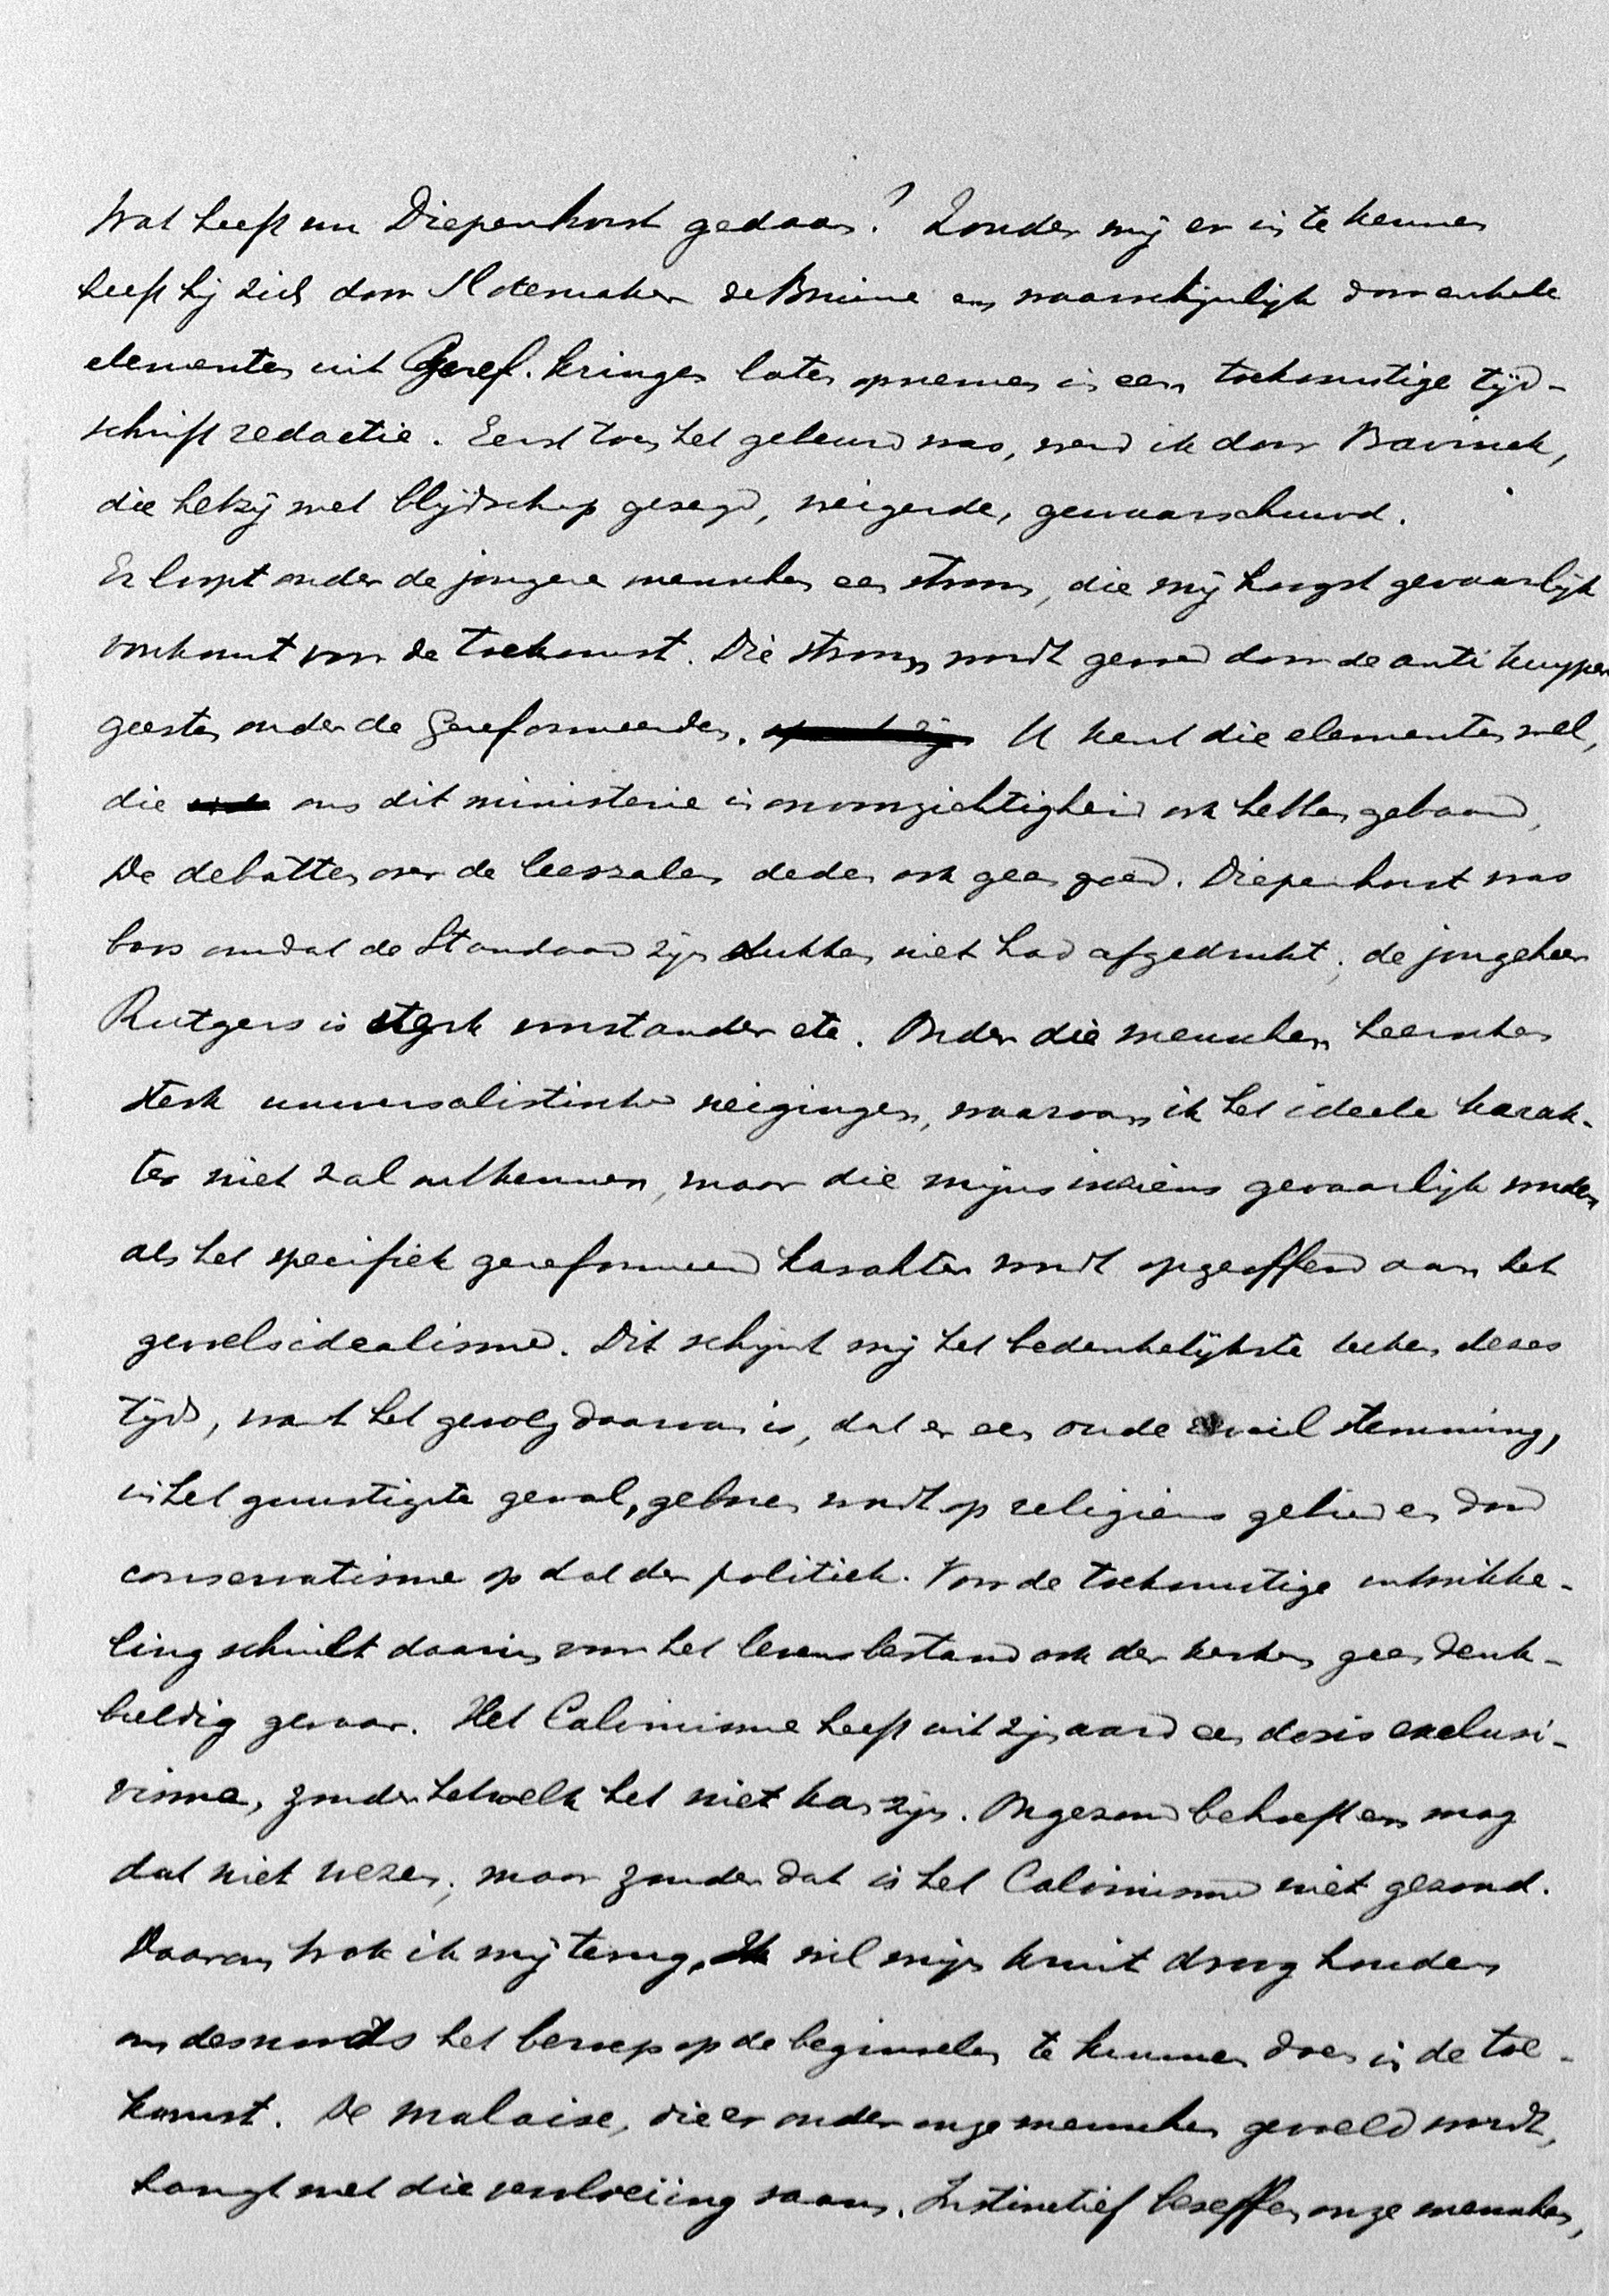 Wat heeft nu Diepenhorst gedaan? Zonder mij er in te kennen
heeft hij zich door Slotemaker de Bruine en waarschijnlijk door enkele
elementen uit Geref. kringen laten opnemen in een toekomstige tijd-
schriftredactie. Eerst toen het gebeurd was, werd ik door Bavinck,
die hetzij met blijdschap gezegd, weigerde, gewaarschuwd.
Er loopt onder de jongere menschen een stroom, die mij hoogst gevaarlijk
voorkomt voor de toekomst. Die stroom wordt gevoed door de anti Kuyper
geesten onder de Gereformeerden. U kent die elementen wel,
die ons dit ministerie in onvoorzichtigheid ook hebben gebaard,
De debatten over de leeszalen deden ook geen goed. Diepenhorst was
boos omdat de Standaard zijn stukken niet had afgedrukt; de jongeheer
Rutgers is sterk voorstander etc. Onder die menschen heerschen
sterk universalistische neigingen, waarvan ik het ideele karak-
ter niet zal ontkennen, maar die mijns inziens gevaarlijk worden
als het specifiek gereformeerd karakter wordt opgeofferd aan het
gevoelsidealisme. Dit schijnt mij het bedenkelijkste teeken dezes
tijds, want het gevolg daarvan is, dat er een oude stemming,
in het gunstigste geval, geboren wordt op religieus gebied en dood
conservatisme op dat der politiek. Voor de toekomstige ontwikke-
ling schuilt daarin voor het levensbestand ook der kerken geen denk-
beeldig gevaar. Het Calvinisme heeft uit zijn aard een dosis exclusi-
visme, zonder hetwelk het niet kan zijn. Ongezond behoeft en mag
dat niet wezen; maar zonder dat is het Calvinisme niet gezond.
Daarom trok ik mij terug. Ik wil mijn kruit droog houden
om desnoods het beroep op de beginselen te kunnen doen in de toe-
komst. De malaise, die er onder onze menschen gevoeld wordt,
hangt met die vervloeiing saam. Instinctief beseffen onze menschen,